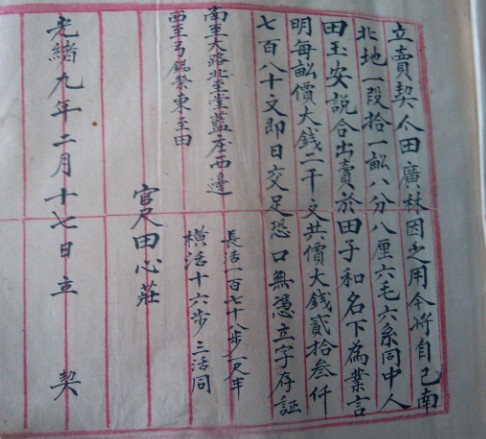 立賣契人田廣林因乏用今將自己南
北地一段拾一畝八分八厘六毛六系同中人
田玉安説合出賣於田子和名下為業言
明每畝價大錢二千文共價大錢貳拾叁仟
七百八十文即日交足恐口無憑立字存証
南至大路北至堂藍座西邊
西至弓錫縈東至田
長活一百七十八步一尺半
橫活十六步三活同
官尺田心莊
光緒九年二月十七日立 契